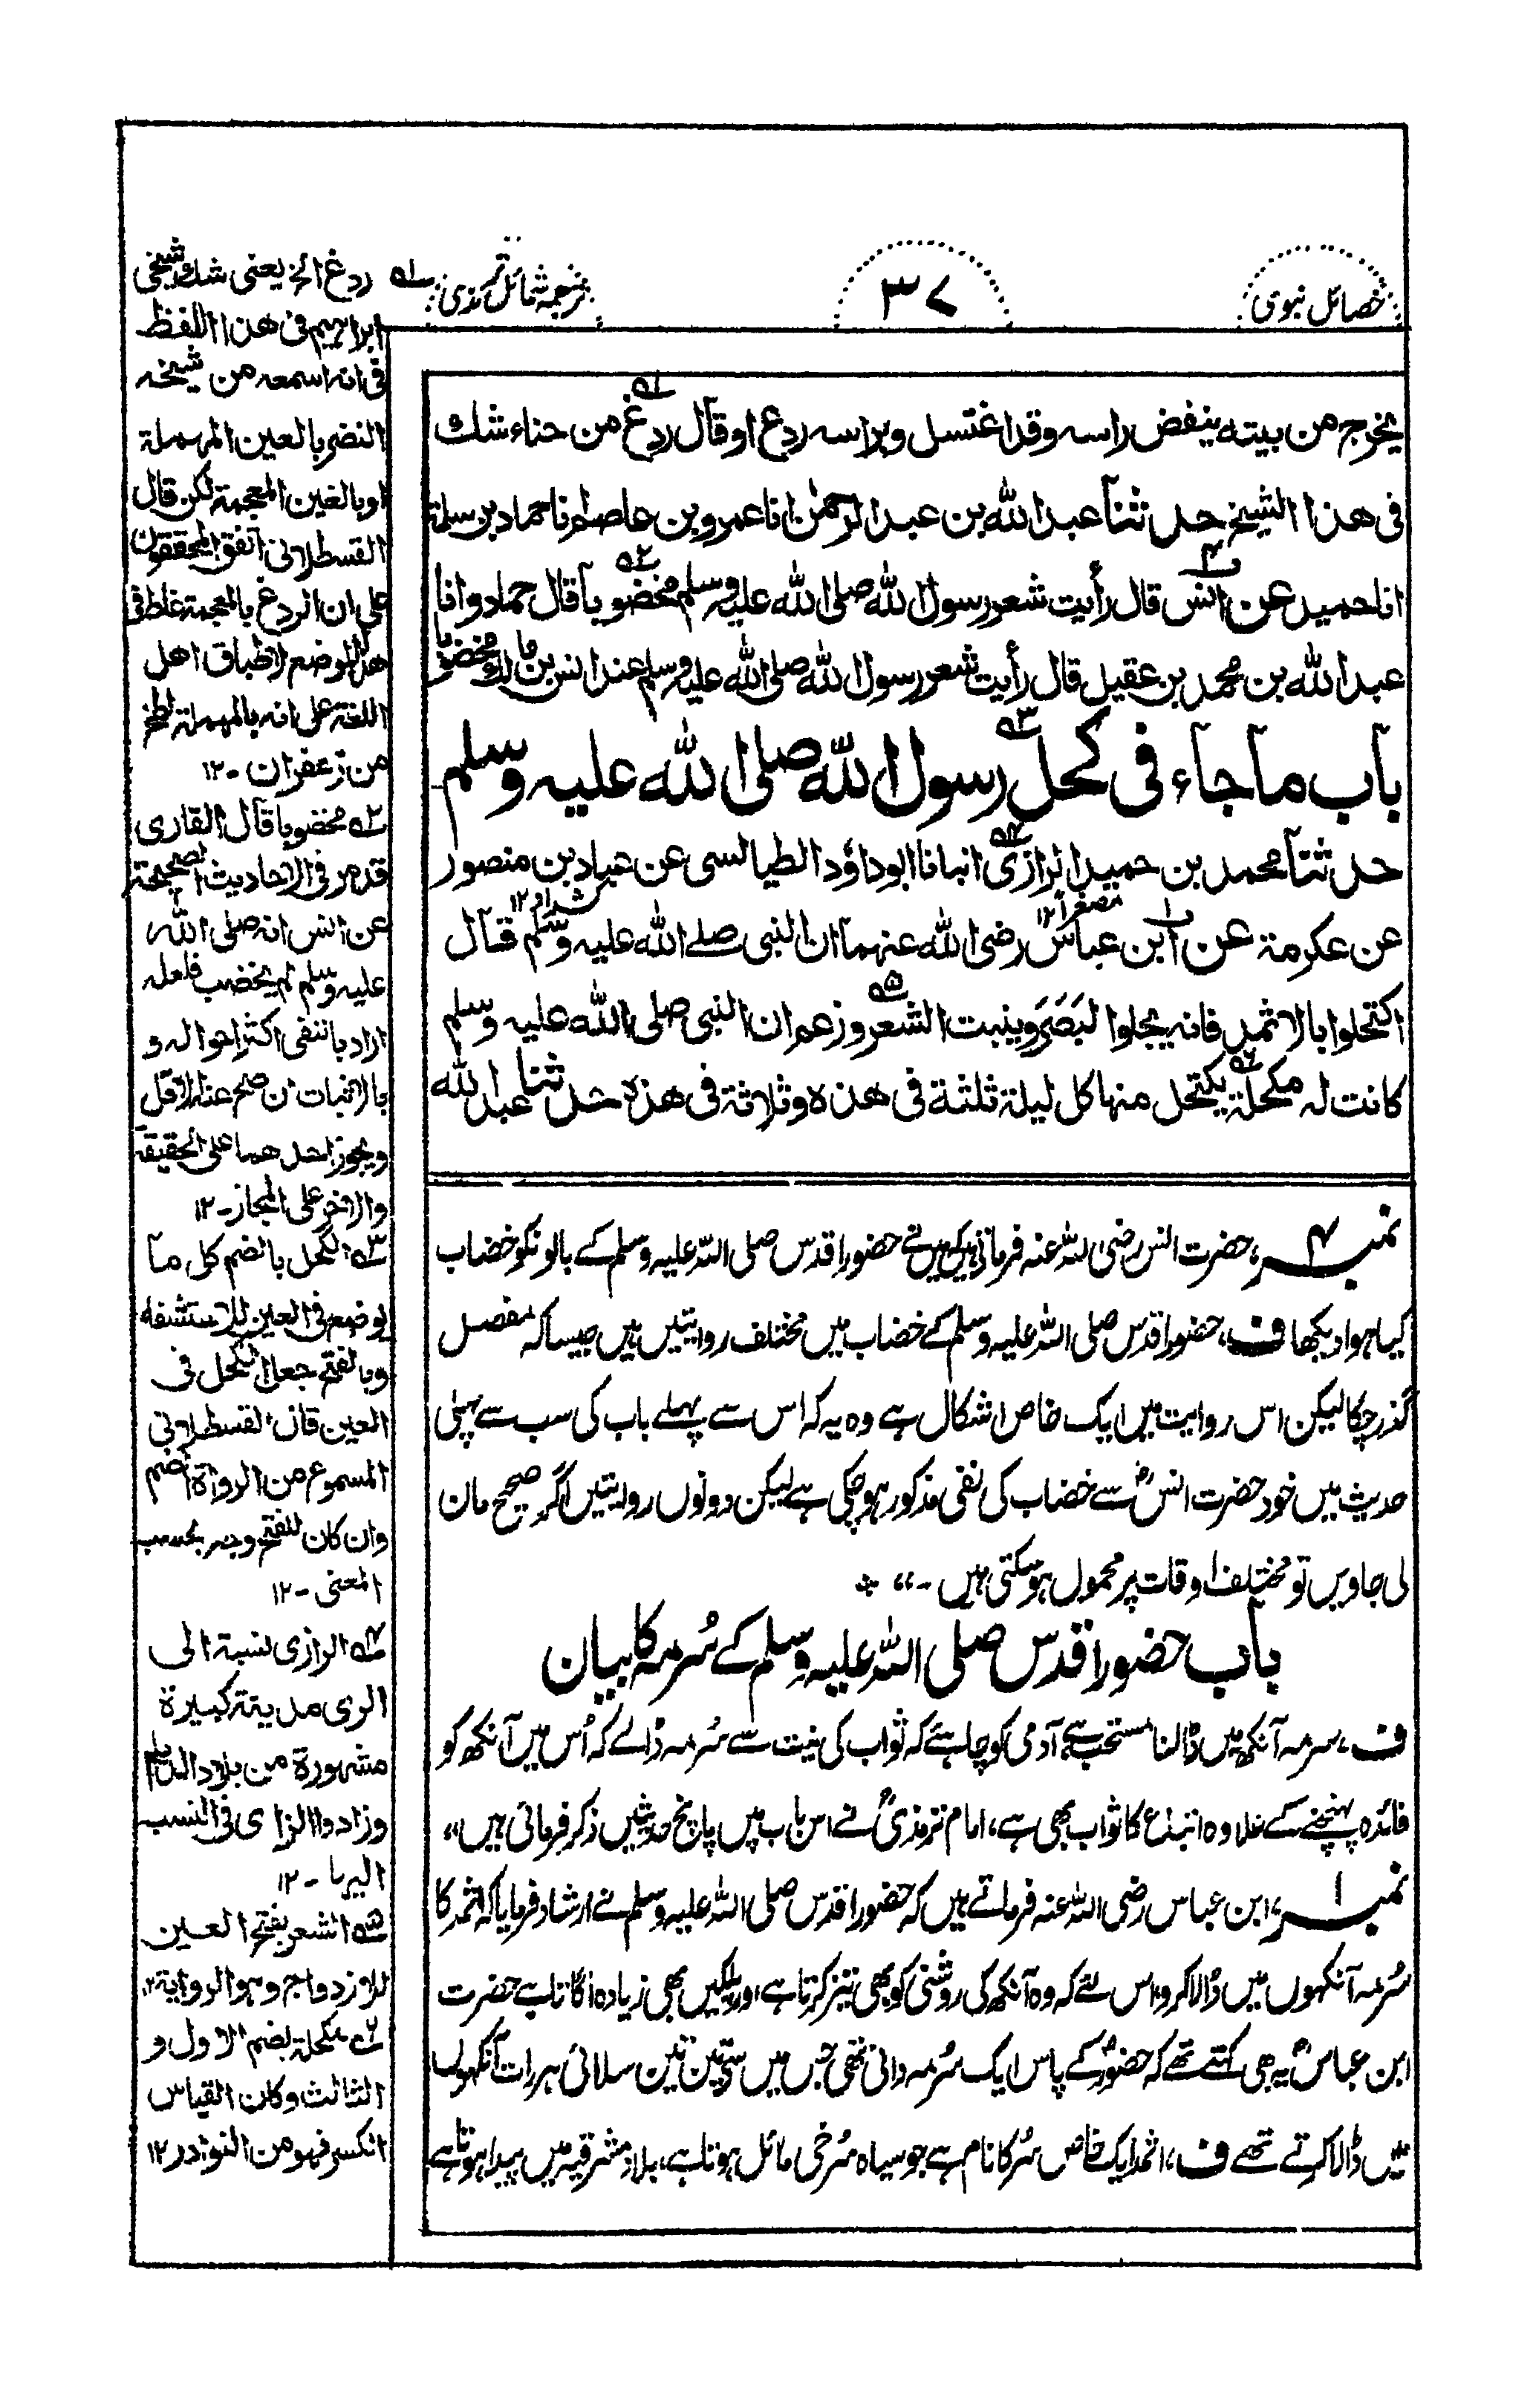 خصائل نبوی
۳۷
ترجمہ شمائل ترمذی
یخرج من بیتہ ینفض راسہ وقد اغتسل وبراسہ ردع اوقال ردغ من حناء شك
فی ھذا الشیخ حدثنا عبد اللہ بن عبد الرحمٰن انا عمرو بن عاصم نا حماد بن سلمۃ
انا حمید عن انس قال رأیت شعر رسول اللہ صلی اللہ علیہ وسلم مخضوبا قال حماد وانا
عبد اللہ بن محمد بن عقیل قال رأیت شعر رسول اللہ صلی اللہ علیہ وسلم عند انس بن مالك مخضوبا
باب ماجاء فی کحل رسول اللہ صلی اللہ علیہ وسلم
حدثنا محمد بن حمید الرازی انبانا ابو داؤد الطیالسی عن عباد بن منصور
مصغرا ۱۲
عن عکرمۃ عن ابن عباس رضی اللہ عنہما ان النبی صلے اللہ علیہ وسلم قال
اکتحلوا بالاثمد فانہ یجلوا البصر وینبت الشعر وزعم ان النبی صلی اللہ علیہ وسلم
کانت لہ مکحلۃ یکتحل منہا کل لیلۃ ثلثۃ فی ھذہ وثلاثۃ فی ھذہ حدثنا عبد اللہ
نمبر ۴، حضرت انس رضی اللہ عنہ فرماتے ہیں کہ میں نے حضور اقدس صلی اللہ علیہ وسلم کے بالونکو خضاب
کیا ہوا دیکھا ف، حضور اقدس صلی اللہ علیہ وسلم کے خضاب میں مختلف روایتیں ہیں جیسا کہ مفصل
گذر چکا لیکن اس روایت میں ایک خاص اشکال ہے وہ یہ کہ اس سے پہلے باب کی سب سے پہلی
حدیث میں خود حضرت انسؓ سے خضاب کی نفی مذکور ہو چکی ہے لیکن دونوں روایتیں اگر صحیح مان
لی جاویں تو مختلف اوقات پر محمول ہو سکتی ہیں ۔،،
باب حضور اقدس صلی اللہ علیہ وسلم کے سُرمہ کا بیان
ف، سرمہ آنکھ میں ڈالنا مستحب ہے آدمی کو چاہئے کہ ثواب کی نیت سے سُرمہ ڈالے کہ اُس میں آنکھ کو
فائدہ پہنچنے کے علاوہ اتباع کا ثواب بھی ہے، امام ترمذیؒ نے اس باب میں پانچ حدیثیں ذکر فرمائی ہیں،،
نمبر ۱، ابن عباس رضی اللہ عنہ فرماتے ہیں کہ حضور اقدس صلی اللہ علیہ وسلم نے ارشاد فرمایا کہ اثمد کا
سُرمہ آنکھوں میں ڈالا کرو، اس لئے کہ وہ آنکھ کی روشنی کو بھی تیز کرتا ہے، اور پلکیں بھی زیادہ اُگاتا ہے حضرت
ابن عباسؓ یہ بھی کہتے تھے کہ حضورؐ کے پاس ایک سُرمہ دانی تھی جس میں سے تین تین سلائی ہر رات آنکھوں
میں ڈالا کرتے تھے ف، اثمد ایک خاص سُرمہ کا نام ہے جو سیاہ سُرخی مائل ہوتا ہے، بلاد مشرقیہ میں پیدا ہوتا ہے
۱ ردغ الخ یعنی شك شیخی
ابراہیم فی ھذا اللفظ
فی انہ اسمعہ من شیخہ
النضر بالعین المہملۃ
او بالغین المعجمۃ لکن قال
القسطلانی اتفق المحققون
علی ان الردغ بالمعجمۃ غلط فی
ھذا الموضع لاطباق اھل
اللغۃ علی انہ بالمہملۃ لطخ
من زعفران ۔۱۲
۲ مخضوبا قال القاری
قد مر فی الاحادیث الصحیحۃ
عن انس انہ صلی اللہ
علیہ وسلم لم یخضب فلعلہ
اراد بالنفی اکثر احوالہ و
بالاثبات ان صح عنہ الاقل
ویجوز احدھما علی الحقیقۃ
والاخر علی المجاز ۔۱۲
۳ الکحل بالضم کل ما
یوضع فی العین للاستشفاء
وبالفتح جعل الکحل فی
العین قال القسطلانی
المسموع من الرواۃ الضم
وان کان للفتح وجہ بحسب
المعنی ۔۱۲
۴ الرازی نسبۃ الی
الری مدینۃ کبیرۃ
مشہورۃ من بلاد الدیلم
وزادوا الزای فی النسب
الیہا ۔۱۲
۵ الشعر بفتح العین
للازدواج وہو الروایۃ ۱۲
۶ مکحلۃ بضم الاول و
الثالث وکان القیاس
الکسر فہو من النوادر ۱۲